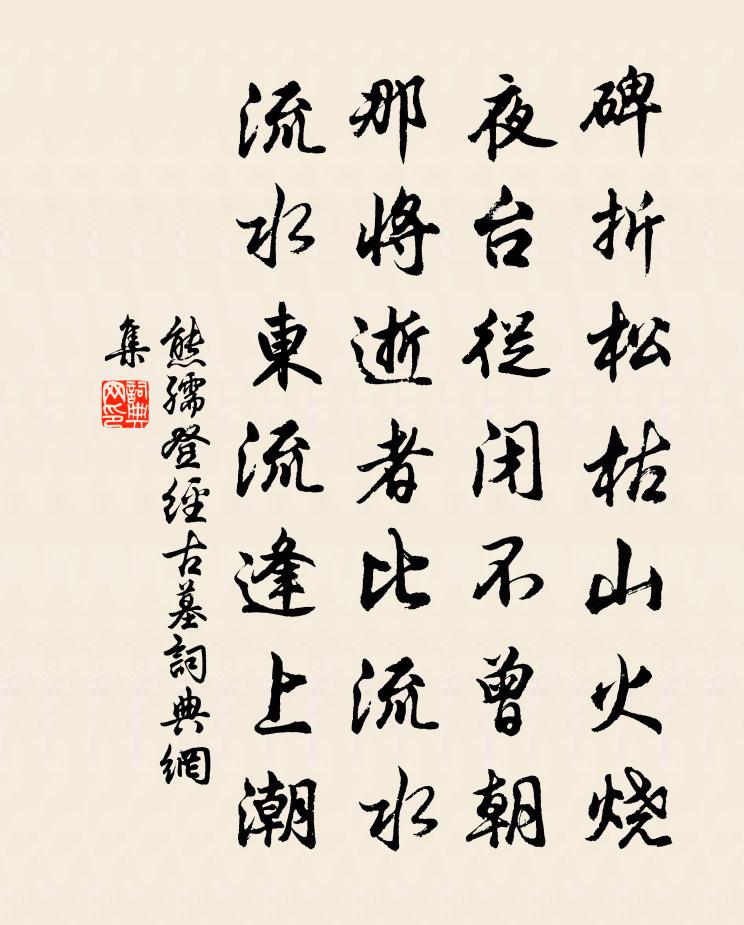 碑折松枯山火烧
夜台從闭不曾朝
那將逝者比流水
流水東流逢上潮
熊孺登經古墓詞典網
集
詞典网印